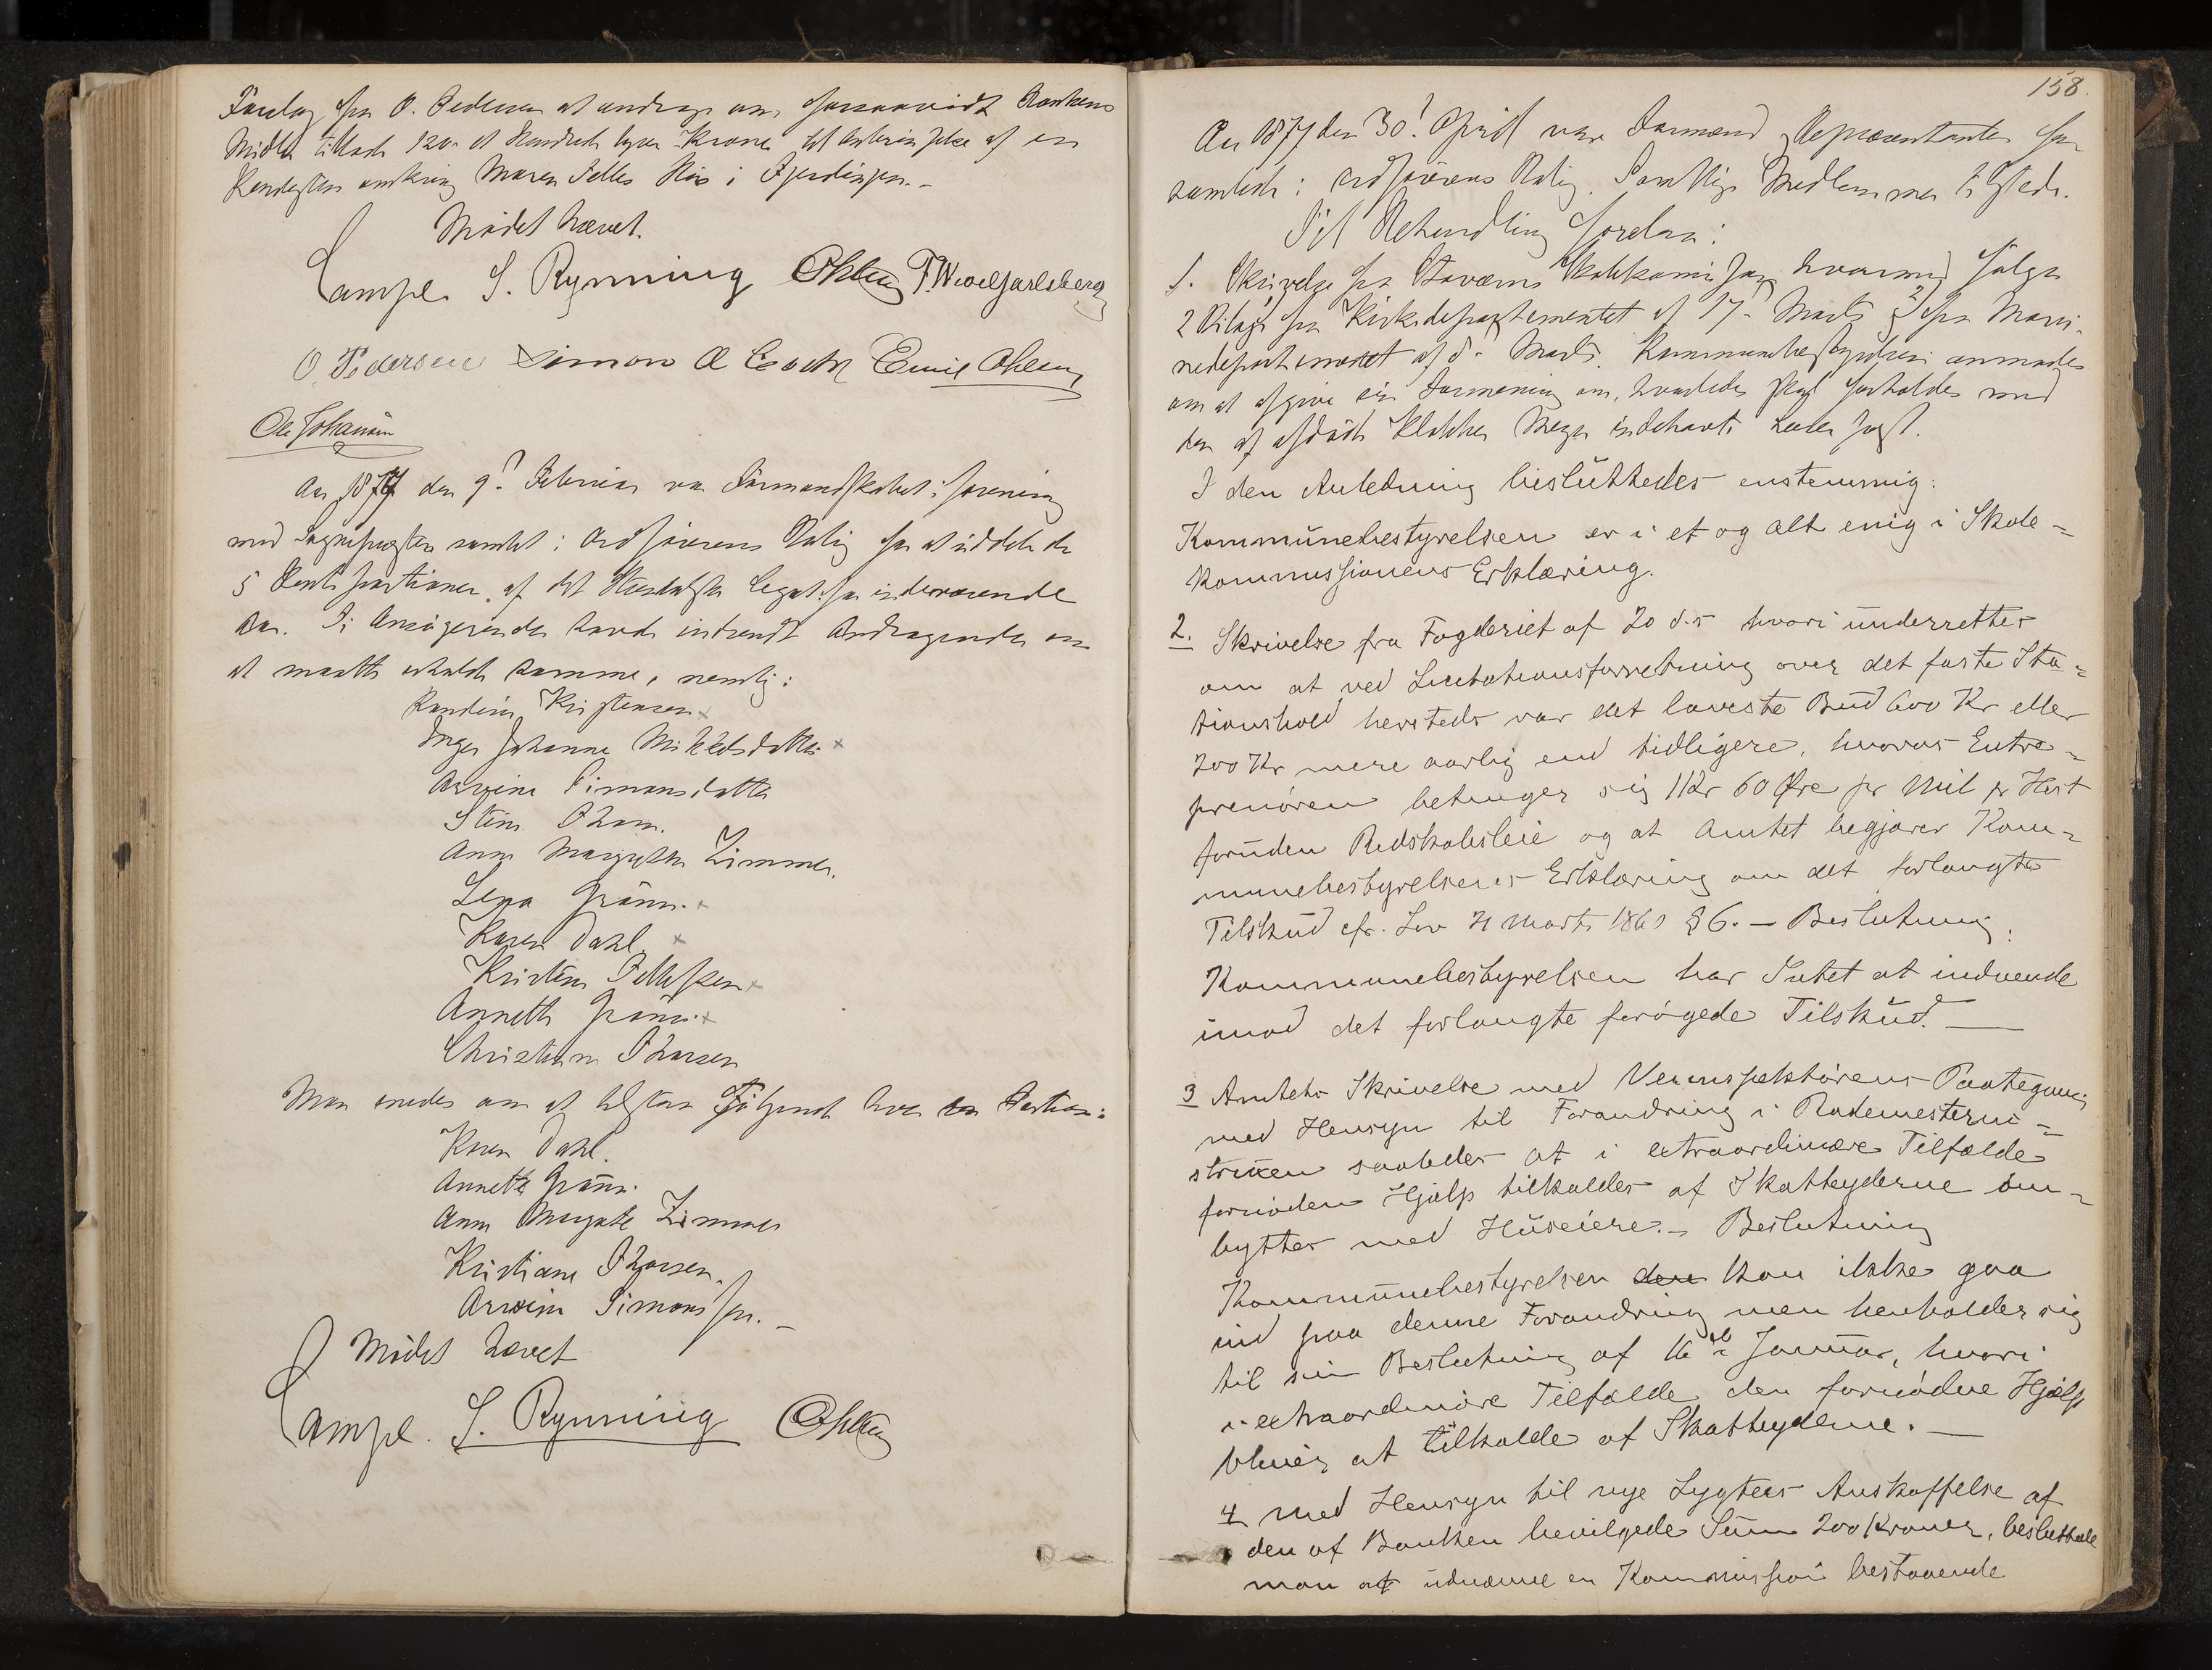 Forslag fra O. Pedersen at andrage om forsaavidt Bankens
Midler tillade 120 et Hundrede tyve Kroner til Anbringelse af en
Rendesten omkring Maren Helles Hus i
Mødet hævet.
Lampe. S. Rynning Ohlsen F. Wedel Jarlsberg
O. Pedersen Simon Emil Ohlsen
Ole Johansen
Aar 1877 den 9. Februar var Formandskabet i forening
med Sognepresten samlet i Ordførerens Bolig for at uddele de
5 portioner af det Legat for indeværende
Aar. Ti Ansøgerinder havde indsendt Andragender om
at maatte erholde samme, nemlig:
Randine Kristensen x
Inger Johanne Mikkelsdatter x
Simonsdatter
Stine Thom.
Anne Margrethe Zimmer.
Lena Grønn. x
Karen Dahl. x
Kristine x
Annette Grønn. x
Christiane Thorsen
Man enedes om at tilstaa Følgende hver en Portion:
Karen Dahl.
Annette Grønn.
Anne Margrete Zimmer
Kristiane Thorsen.
Simons
Mødet hævet
Lampe. S. Rynning Ohlsen
158.
Aar 1877 den 30. April var Formænd og Repræsentanter for
samlede i Ordførerens Bolig. Samtlige Medlemmer tilstede.
Til Behandling forelaa:
1. Skrivelse fra Staværns Skolekommission hvormed følger
2 Bilage fra Kirkedepartementet af 17. Marts og fra Mari-
nedepartementet af 8. Marts. Kommunebestyrelsen anmodes
om at afgive sin Formening om, hvorledes skal forholdes med
den af afdøde Klokker indehavte
I den Anledning besluttedes enstemmig:
Kommunebestyrelsen er i et og alt enig i Skole-
kommissionens Erklæring.
2. Skrivelse fra Fogderiet af 20 d.s hvori underrettes
om at ved Licitationsforretning over det faste Sta-
tionshold hersteds var det laveste Bud 600 Kr eller
200 Kr mere aarlig end tidligere, hvoraf Entre-
prenøren betinger sig 1 Kr 60 Øre pr Mil pr Hest
foruden Redskabsleie og at Amtet begjærer Kom-
munebestyrelsens Erklæring om det forlangte
Tilskud cfr. Lov 21 Marts 1860 § 6. — Beslutning:
Kommunebestyrelsen har Intet at indvende
imod det forlangte forøgede Tilskud. —
3 Amtets Skrivelse med Veiinspektørens Paategning
med Hensyn til Forandring i Rodemesterin-
struxen saaledes at i extraordinære Tilfælde
fornøden Hjælp tilkaldes af Skatteyderne om-
byttes med Huseiere. — Beslutning
Kommunebestyrelsen den kan ikke gaa
ind paa denne Forandring men henholder sig
til sin Beslutning af 16de Januar, hvori
i extraordinære Tilfælde den fornødne Hjælp
bliver at tilkalde af Skatteyderne. —
4 Med Hensyn til nye Lygters Anskaffelse af
den af Banken bevilgede Sum 200 Kroner, besluttede
man at udnævne en Kommission bestaaende